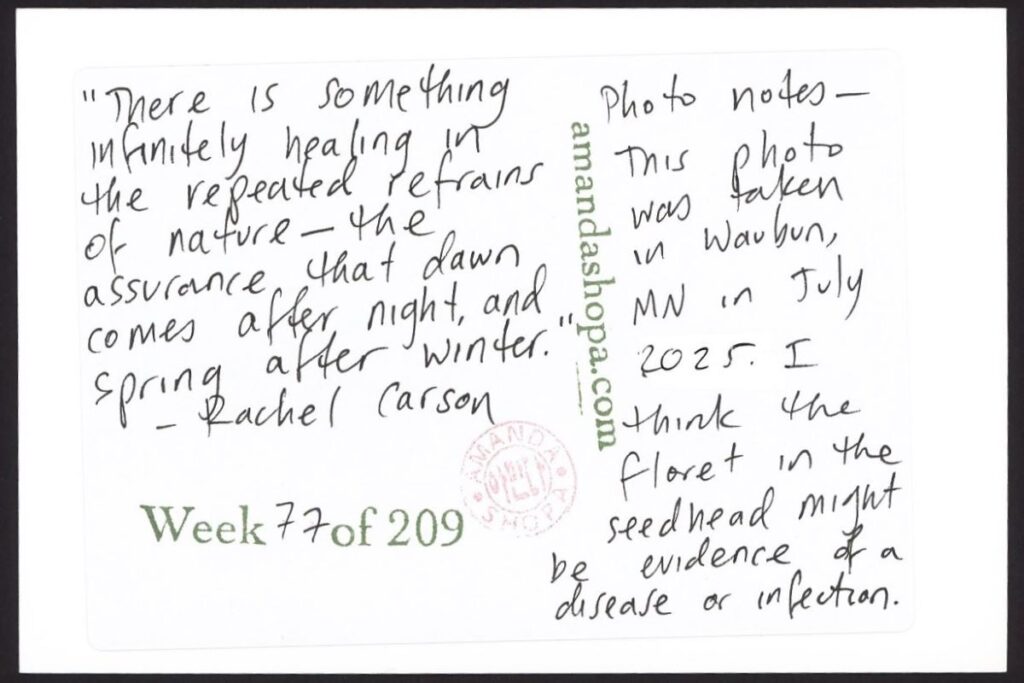 "There is something
infinitely healing in
the repeated refrains
of nature – the
assurance that dawn
comes after night, and
spring after winter."
– Rachel Carson
Week 77 of 209
AMANDA
SHOPA
amandashopa.com
Photo notes –
This photo
was taken
in Waubun,
MN in July
2025. I
think the
floret in the
seedhead might
be evidence of a
disease or infection.